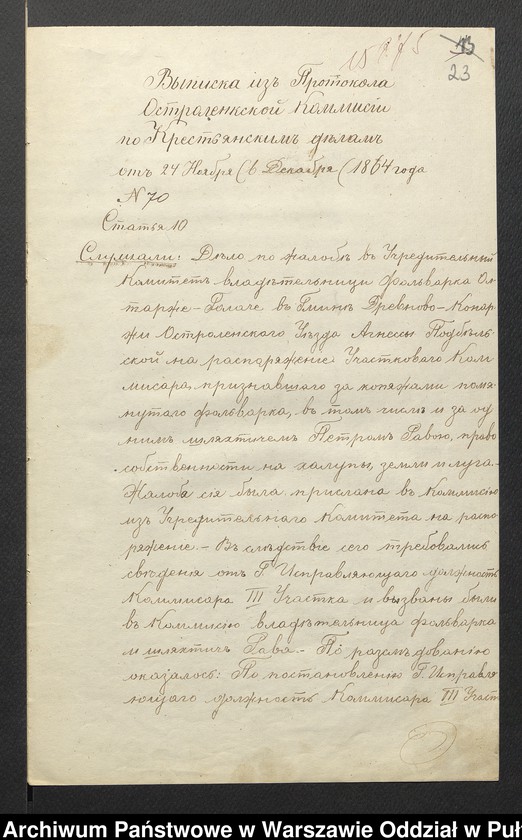 15875
13
23
Выписка изъ Протокола
Остроленкской Коммисіи
по Крестьянскимъ дѣламъ
отъ 24 Ноября (6 Декабря) 1864 года
N 70
Статья 10
Слушали: Дѣло по жалобѣ въ Учредительный
Комитетъ владѣтельницы фольварка Ол-
тарже-Голаче въ Гминѣ Гревново-Конар-
жи Остроленскаго Уѣзда Агнессы Подбѣль-
ской на распоряженіе Участковаго Ком
мисара, признавшаго за копяжами помя-
нутаго фольварка, въ томъ числѣ и за од
нимъ шляхтичемъ Петромъ Равою, право
собственности на халупы, земли и луга.-
Жалоба сія была прислана въ Коммисію
изъ Учредительнаго Комитета на распо
ряженіе.- Въ слѣдствіе сего требовались
свѣденія отъ Г. Исправляющаго должность
Коммисара III Участка и вызваны были
въ Коммисію владѣтельница фольварка
и шляхтичъ Рава.- По разслѣдованію
оказалось: По постановленію Г. Исправля
ющаго должность Коммисара III Участ
Archiwum Państwowe w Warszawie Oddział w Puł